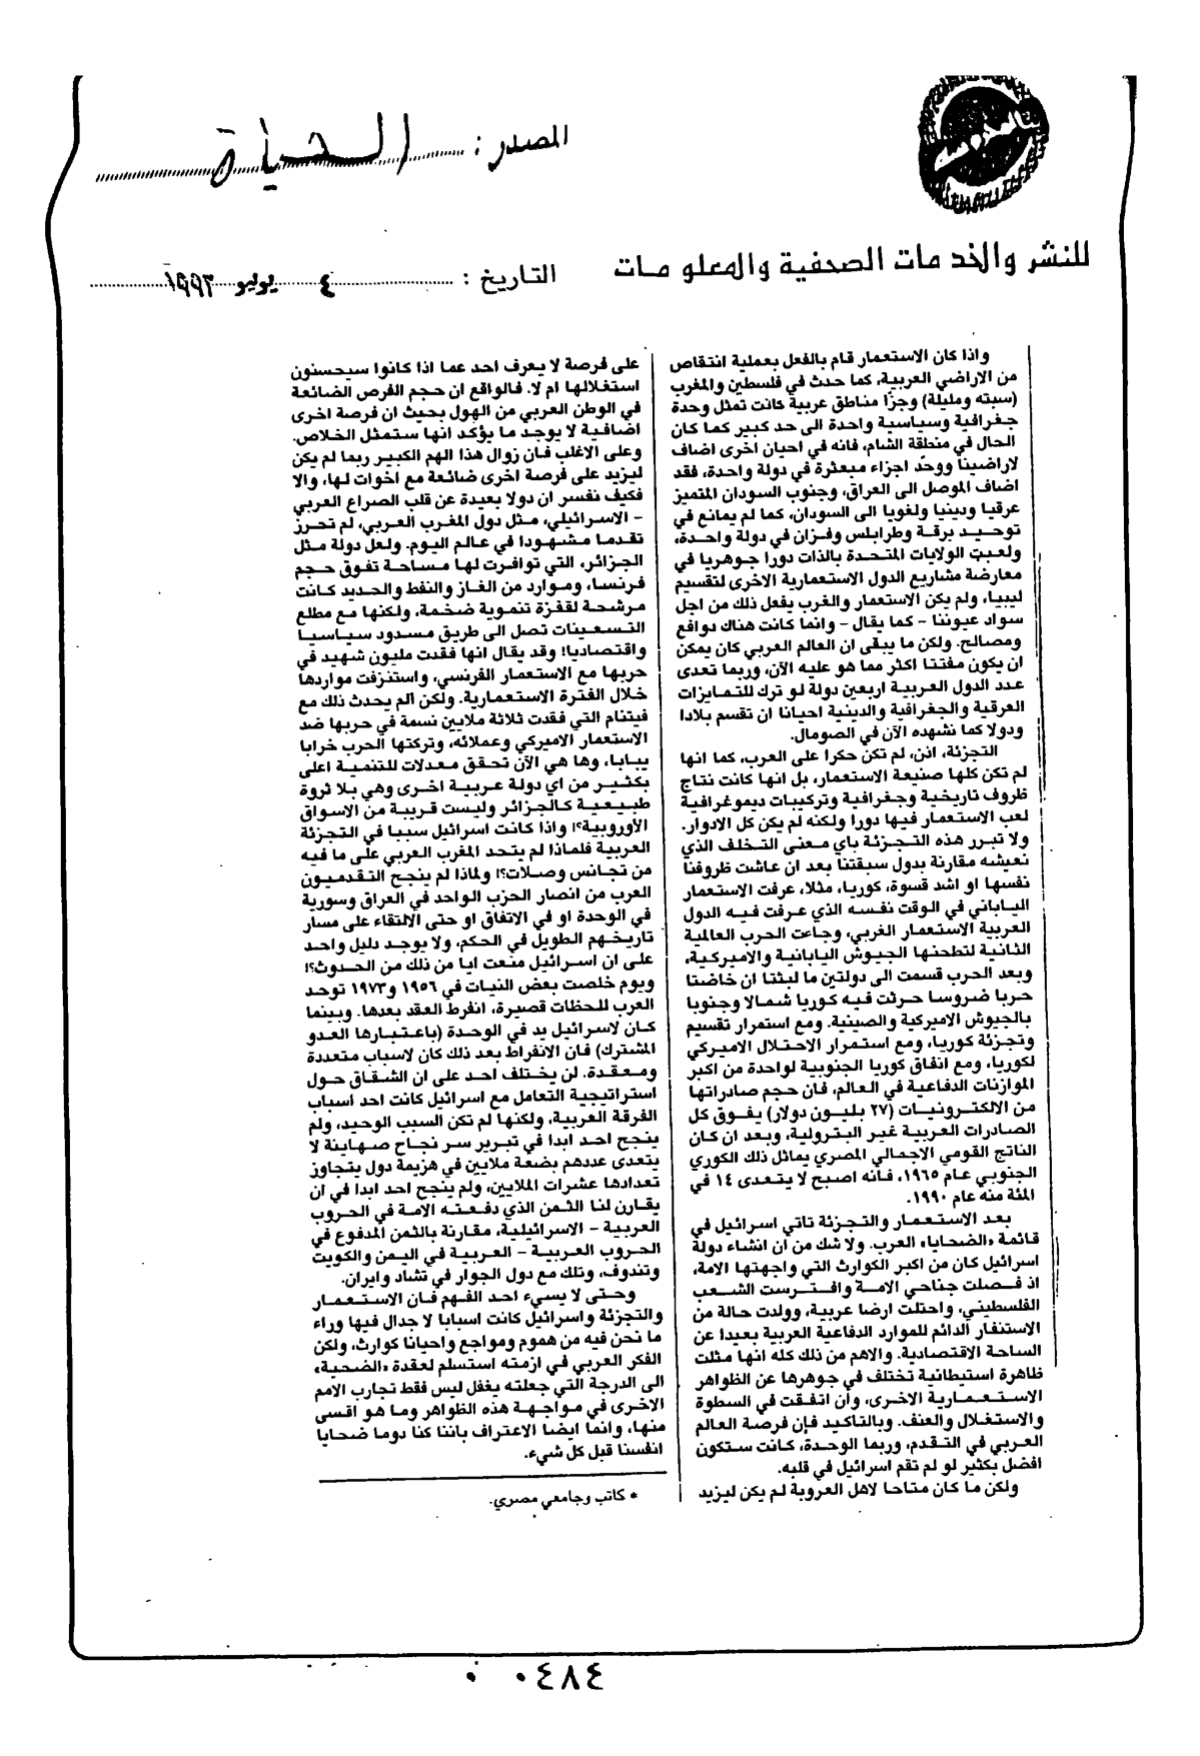 المصدر : الحياة
للنشر والخدمات الصحفية والمعلومات
التاريخ : ٤ يوليو ١٩٩٣
واذا كان الاستعمار قام بالفعل بعملية انتقاص
من الاراضي العربية، كما حدث في فلسطين والمغرب
(سبته ومليلة) وجزّا مناطق عربية كانت تمثل وحدة
جغرافية وسياسية واحدة الى حد كبير كما كان
الحال في منطقة الشام، فانه في احيان اخرى اضاف
لاراضينا ووحّد اجزاء مبعثرة في دولة واحدة، فقد
اضاف الموصل الى العراق، وجنوب السودان المتميز
عرقيا ودينيا ولغويا الى السودان، كما لم يمانع في
توحيد برقة وطرابلس وفزان في دولة واحدة،
ولعبت الولايات المتحدة بالذات دورا جوهريا في
معارضة مشاريع الدول الاستعمارية الاخرى لتقسيم
ليبيا، ولم يكن الاستعمار والغرب يفعل ذلك من اجل
سواد عيوننا - كما يقال - وانما كانت هناك دوافع
ومصالح. ولكن ما يبقى ان العالم العربي كان يمكن
ان يكون مفتتا اكثر مما هو عليه الآن، وربما تعدى
عدد الدول العربية اربعين دولة لو ترك للتمايزات
العرقية والجغرافية والدينية احيانا ان تقسم بلادا
ودولا كما نشهده الآن في الصومال.
التجزئة، اذن، لم تكن حكرا على العرب، كما انها
لم تكن كلها صنيعة الاستعمار، بل انها كانت نتاج
ظروف تاريخية وجغرافية وتركيبات ديموغرافية
لعب الاستعمار فيها دورا ولكنه لم يكن كل الادوار.
ولا تبرر هذه التجزئة باي معنى التخلف الذي
نعيشه مقارنة بدول سبقتنا بعد ان عاشت ظروفنا
نفسها او اشد قسوة، كوريا، مثلا، عرفت الاستعمار
الياباني في الوقت نفسه الذي عرفت فيه الدول
العربية الاستعمار الغربي، وجاءت الحرب العالمية
الثانية لتطحنها الجيوش اليابانية والاميركية،
وبعد الحرب قسمت الى دولتين ما لبثتا ان خاضتا
حربا ضروسا حرثت فيه كوريا شمالا وجنوبا
بالجيوش الاميركية والصينية. ومع استمرار تقسيم
وتجزئة كوريا، ومع استمرار الاحتلال الاميركي
لكوريا، ومع انفاق كوريا الجنوبية لواحدة من اكبر
الموازنات الدفاعية في العالم، فان حجم صادراتها
من الالكترونيات (٢٧ بليون دولار) يفوق كل
الصادرات العربية غير البترولية، وبعد ان كان
الناتج القومي الاجمالي المصري يماثل ذلك الكوري
الجنوبي عام ١٩٦٥، فانه اصبح لا يتعدى ١٤ في
المئة منه عام ١٩٩٠.
بعد الاستعمار والتجزئة تاتي اسرائيل في
قائمة «الضحايا» العرب. ولا شك من ان انشاء دولة
اسرائيل كان من اكبر الكوارث التي واجهتها الامة،
اذ فصلت جناحي الامة وافترست الشعب
الفلسطيني، واحتلت ارضا عربية، وولدت حالة من
الاستنفار الدائم للموارد الدفاعية العربية بعيدا عن
الساحة الاقتصادية. والاهم من ذلك كله انها مثلت
ظاهرة استيطانية تختلف في جوهرها عن الظواهر
الاستعمارية الاخرى، وأن اتفقت في السطوة
والاستغلال والعنف. وبالتاكيد فإن فرصة العالم
العربي في التقدم، وربما الوحدة، كانت ستكون
افضل بكثير لو لم تقم اسرائيل في قلبه.
ولكن ما كان متاحا لاهل العروبة لم يكن ليزيد
على فرصة لا يعرف احد عما اذا كانوا سيحسنون
استغلالها ام لا. فالواقع ان حجم الفرص الضائعة
في الوطن العربي من الهول بحيث ان فرصة اخرى
اضافية لا يوجد ما يؤكد انها ستمثل الخلاص.
وعلى الاغلب فان زوال هذا الهم الكبير ربما لم يكن
ليزيد على فرصة اخرى ضائعة مع اخوات لها، والا
فكيف نفسر ان دولا بعيدة عن قلب الصراع العربي
- الاسرائيلي، مثل دول المغرب العربي، لم تحرز
تقدما مشهودا في عالم اليوم. ولعل دولة مثل
الجزائر، التي توافرت لها مساحة تفوق حجم
فرنسا، وموارد من الغاز والنفط والحديد كانت
مرشحة لقفزة تنموية ضخمة، ولكنها مع مطلع
التسعينات تصل الى طريق مسدود سياسيا
واقتصاديا! وقد يقال انها فقدت مليون شهيد في
حربها مع الاستعمار الفرنسي، واستنزفت مواردها
خلال الفترة الاستعمارية. ولكن الم يحدث ذلك مع
فيتنام التي فقدت ثلاثة ملايين نسمة في حربها ضد
الاستعمار الاميركي وعملائه، وتركتها الحرب خرابا
يبابا، وها هي الآن تحقق معدلات للتنمية اعلى
بكثير من اي دولة عربية اخرى وهي بلا ثروة
طبيعية كالجزائر وليست قريبة من الاسواق
الأوروبية؟! واذا كانت اسرائيل سببا في التجزئة
العربية فلماذا لم يتحد المغرب العربي على ما فيه
من تجانس وصلات؟! ولماذا لم ينجح التقدميون
العرب من انصار الحزب الواحد في العراق وسورية
في الوحدة او في الاتفاق او حتى الالتقاء على مسار
تاريخهم الطويل في الحكم، ولا يوجد دليل واحد
على ان اسرائيل منعت ايا من ذلك من الحدوث؟!
ويوم خلصت بعض النيات في ١٩٥٦ و١٩٧٣ توحد
العرب للحظات قصيرة، انفرط العقد بعدها. وبينما
كان لاسرائيل يد في الوحدة (باعتبارها العدو
المشترك) فان الانفراط بعد ذلك كان لاسباب متعددة
ومعقدة. لن يختلف احد على ان الشقاق حول
استراتيجية التعامل مع اسرائيل كانت احد اسباب
الفرقة العربية، ولكنها لم تكن السبب الوحيد، ولم
ينجح احد ابدا في تبرير سر نجاح صهاينة لا
يتعدى عددهم بضعة ملايين في هزيمة دول يتجاوز
تعدادها عشرات الملايين، ولم ينجح احد ابدا في ان
يقارن لنا الثمن الذي دفعته الامة في الحروب
العربية - الاسرائيلية، مقارنة بالثمن المدفوع في
الحروب العربية - العربية في اليمن والكويت
وتندوف، وتلك مع دول الجوار في تشاد وايران.
وحتى لا يسيء احد الفهم فان الاستعمار
والتجزئة واسرائيل كانت اسبابا لا جدال فيها وراء
ما نحن فيه من هموم ومواجع واحيانا كوارث، ولكن
الفكر العربي في ازمته استسلم لعقدة «الضحية»
الى الدرجة التي جعلته يغفل ليس فقط تجارب الامم
الاخرى في مواجهة هذه الظواهر وما هو اقسى
منها، وانما ايضا الاعتراف باننا كنا دوما ضحايا
انفسنا قبل كل شيء.
* كاتب وجامعي مصري.
٠ ٠٤٨٤